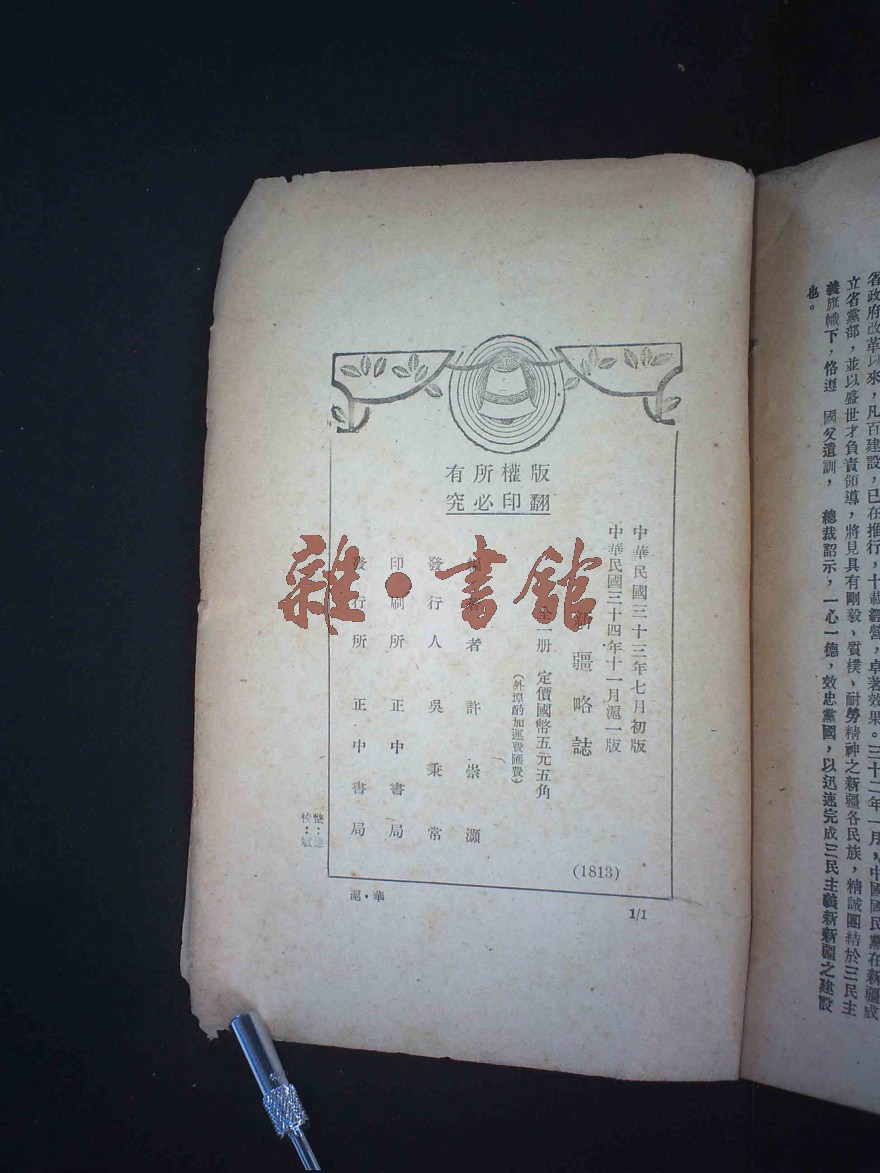 省政府改革以來，凡百建設，已在推行，十載經營，卓著效果。三十二年一月，中國國民黨在新疆成
立省黨部，並以盛世才負責領導，將見具有剛毅、質樸、耐勞精神之新疆各民族，精誠團結於三民主
義旗幟下，恪遵 國父遺訓， 總裁詔示，一心一德，效忠黨國，以迅速完成三民主義新新疆之建設
也。
版權所有
翻印必究
中華民國三十三年七月初版
中華民國三十四年十一月滬一版
新疆略誌
全一册 定價國幣五元五角
（外埠酌加運費匯費）
者 許崇灝
發行人 吳秉常
印刷所 正中書局
發行所 正中書局
(1813)
整：
檢：
滬・華
1/1
雜・書館